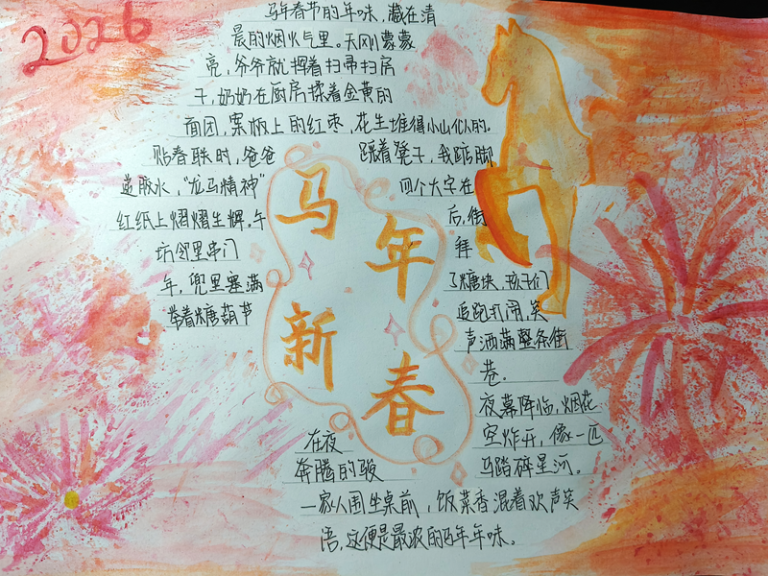 2026
马年春节的年味，藏在清
晨的烟火气里。天刚蒙蒙
亮，爷爷就挥着扫帚扫房
子，奶奶在厨房揉着金黄的
面团，案板上的红枣、花生堆得小山似的。
贴春联时，爸爸 踩着凳子，我踮脚
递胶水，“龙马精神” 四个大字在
红纸上熠熠生辉。午 后，街
坊邻里串门 拜
年，兜里塞满 了糖块，孩子们
举着糖葫芦 追跑打闹，笑
声洒满整条街
巷。
马年
新春
夜幕降临，烟花
在夜 空炸开，像一匹
奔腾的骏 马踏碎星河。
一家人围坐桌前，饭菜香混着欢声笑
语，这便是最浓的马年年味。